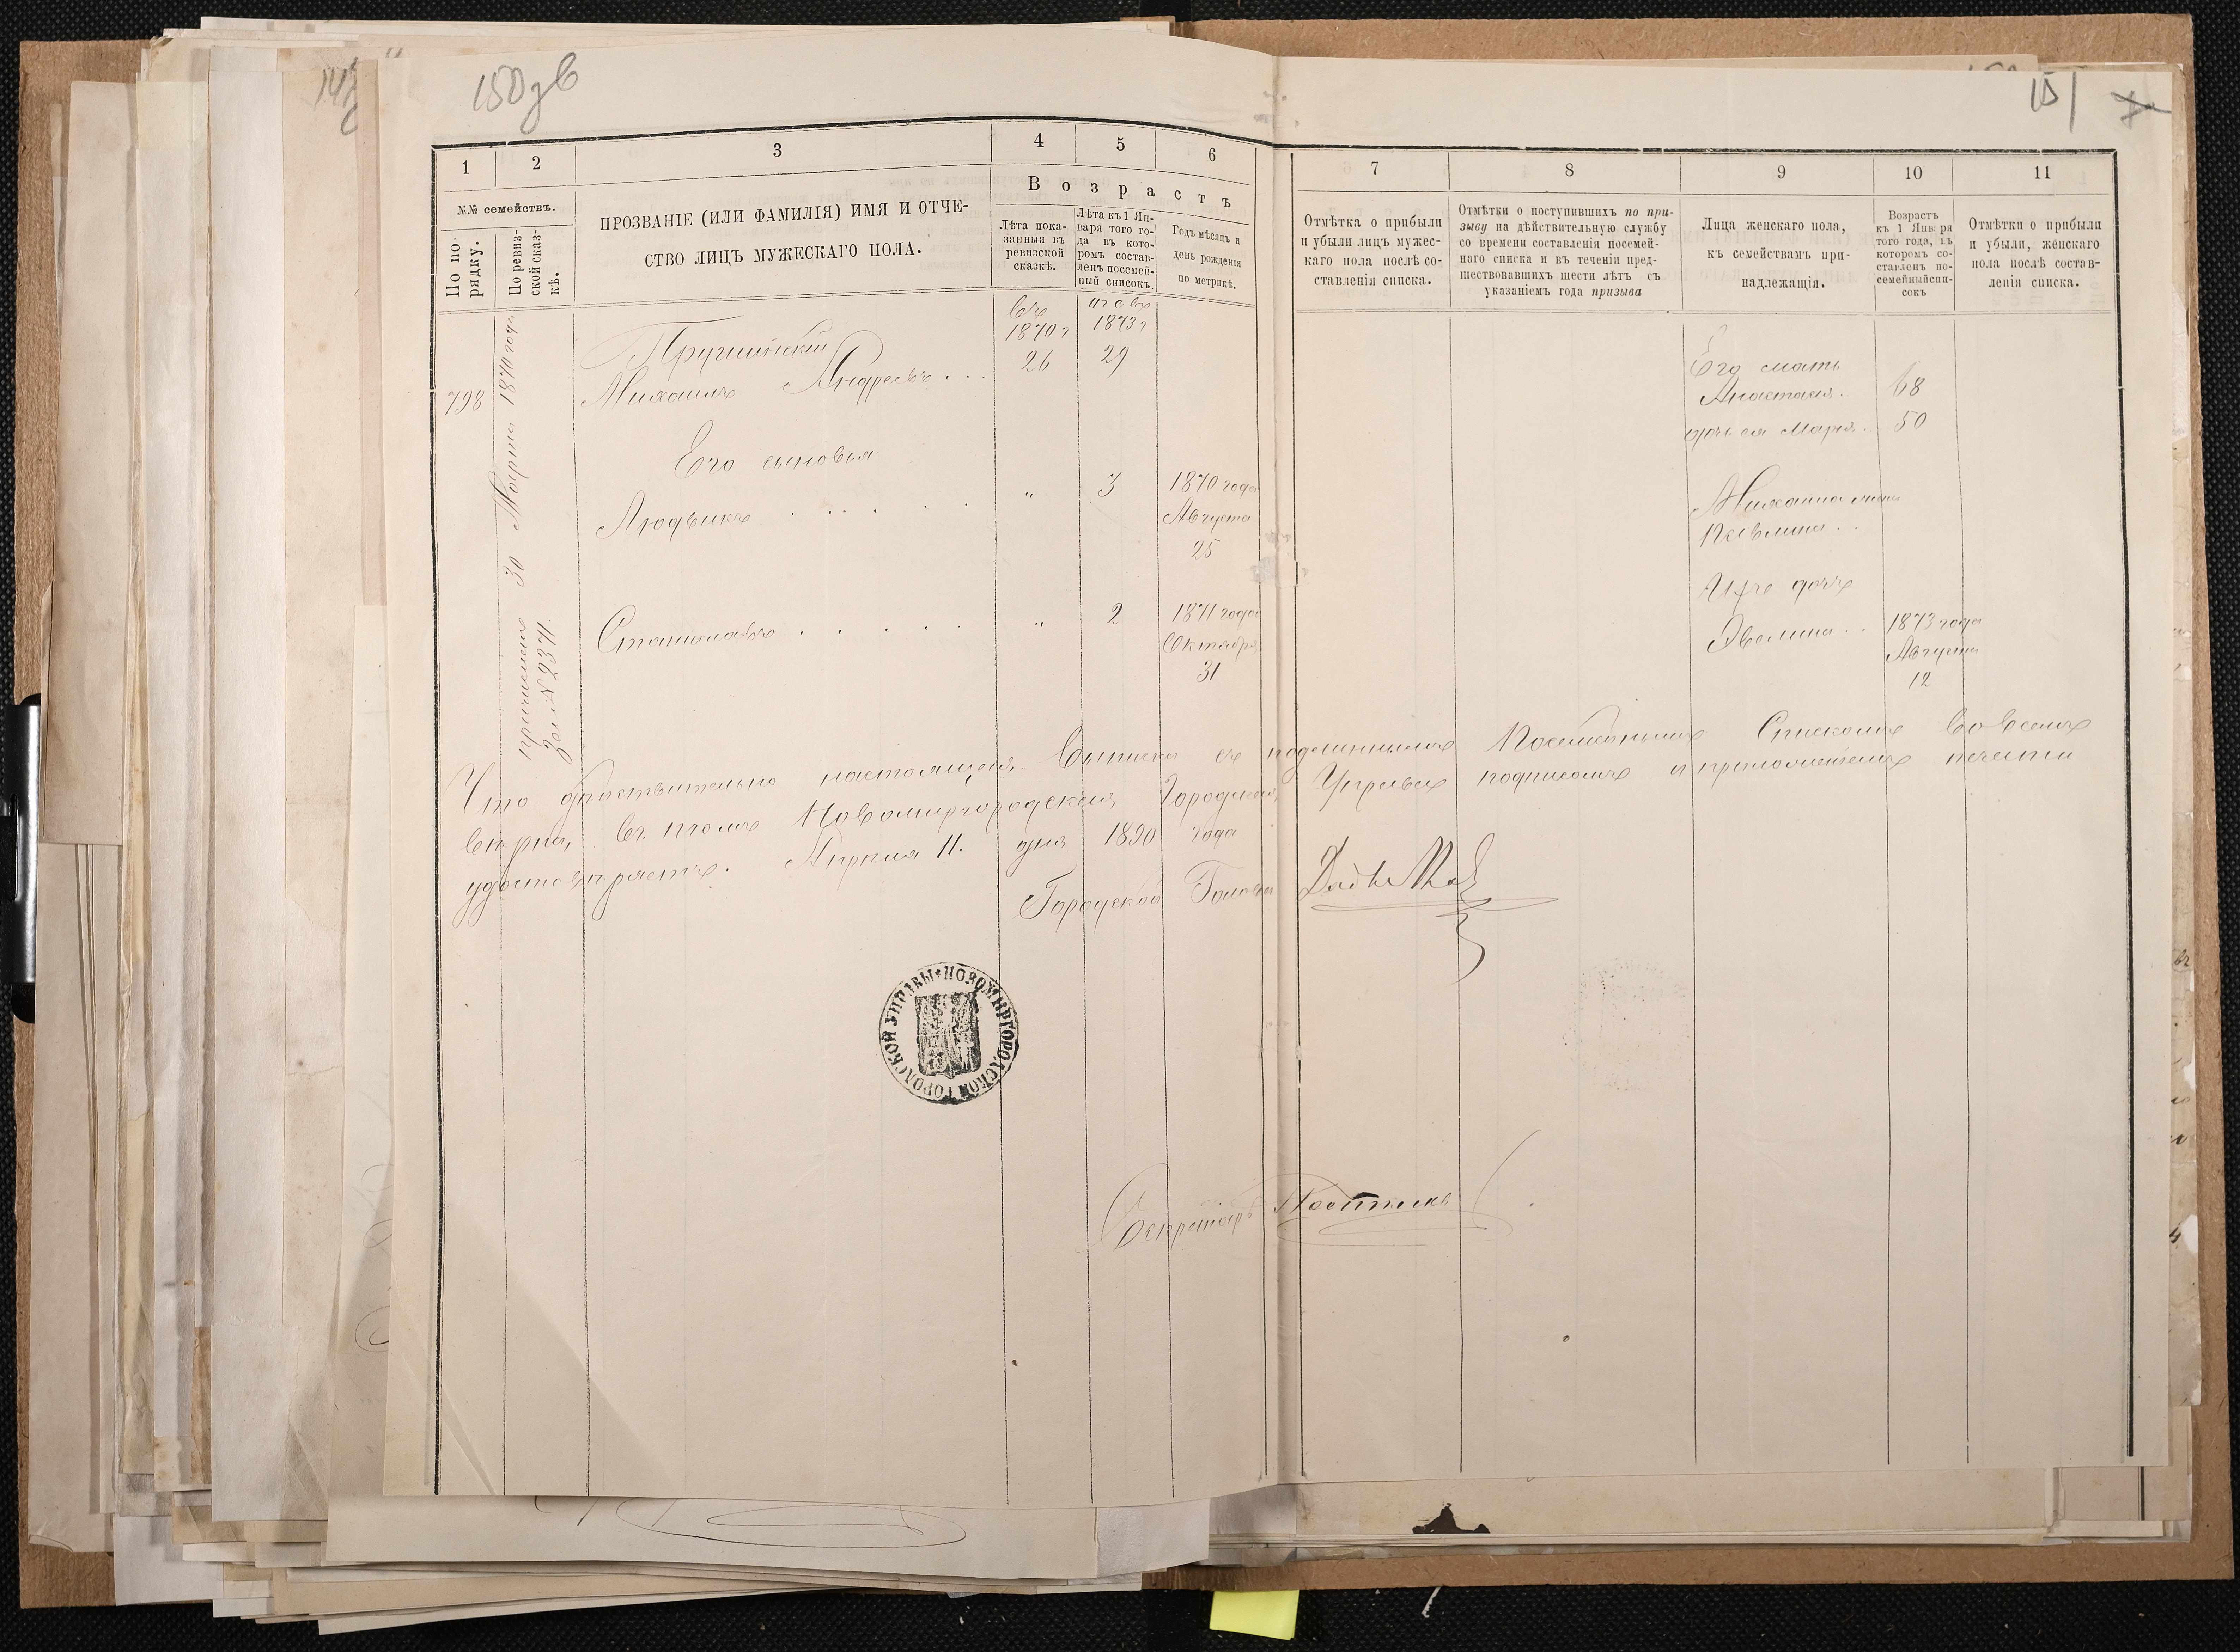 150зв
151
1 2 3 4 5 6 7 8 9 10 11
№№ семействъ.
По по-
рядку.
По ревиз-
ской сказ-
кѣ.
ПРОЗВАНІЕ (ИЛИ ФАМИЛІЯ) ИМЯ И ОТЧЕ-
СТВО ЛИЦЪ МУЖЕСКАГО ПОЛА.
Возрастъ
Лѣта пока-
занныя въ
ревизской
сказкѣ.
Лѣта къ 1 Ян-
варя того го-
да въ кото-
ромъ состав-
ленъ посемей-
ный списокъ.
Годъ мѣсяцъ и
день рожденія
по метрикѣ.
Отмѣтка о прибыли
и убыли лицъ мужес-
каго пола послѣ со-
ставленія списка.
Отмѣтки о поступившихъ по при-
зыву на дѣйствительную службу
со времени составленія посемей-
наго списка и въ теченіи пред-
шествовавшихъ шести лѣтъ съ
указаніемъ года призыва
Лица женскаго пола,
къ семействамъ при-
надлежащія.
Возрастъ
къ 1 Января
того года, въ
которомъ со-
ставленъ по-
семейный спи-
сокъ
Отмѣтки о прибыли
и убыли, женскаго
пола послѣ состав-
ленія списка.
798
причисленъ 30 Марта 1870 года
№ 2371.
въ
1870 г
1873 г
Михаилъ Андреевъ . . .
26 29
Его сыновья
Людвикъ . . . . . .
" 3
1870 года
Августа
25
Станиславъ . . . . .
" 2
1871 года
Октября
31
Его мать
Анастасія. 68
дочь ея Марія. 50
Михаила жена
Ихъ дочь
Эвелина . . 1873 года
Августа
12
Что дѣйствительно настоящая Выписка съ подлиннымъ Посемейнымъ Спискомъ во всемъ
вѣрна, въ томъ Новомиргородская Городская Управа подписомъ и приложеніемъ печати
удостовѣряетъ. Апрѣля 11. дня 1890 года
Городской Голова
НОВОМИРГОРОДСКОЙ ГОРОДСКОЙ УПРАВЫ
Секретарь